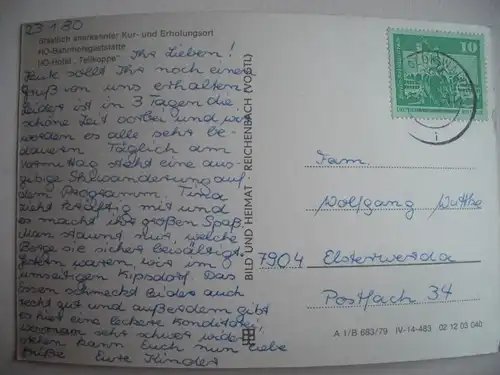 23.1.80
Staatlich anerkannter Kur- und Erholungsort
HO-Bahnhofsgaststätte
HO-Hotel "Tellkoppe"
Ihr Lieben!
Heute sollt Ihr noch einen
Gruß von uns erhalten.
Leider ist in 3 Tagen die
schöne Zeit vorbei und wir
werden es alle sehr be-
dauern. Täglich am
Vormittag steht eine aus-
giebige Skiwanderung auf
dem Programm. Timo
zieht kräftig mit und
es macht ihm großen Spaß.
Man staunt nur, welche
Berge sie sicher bewältigt.
Gestern waren wir im
unseitigen Kipsdorf. Das
Essen schmeckt leider auch
recht gut und außerdem gibt
es hier eine leckere Konditorei,
sehr schwer wider-
stehen kann. Euch nun liebe
Grüße Eure Kinder
BILD UND HEIMAT · REICHENBACH (VOGTL)
10
Fam.
Wolfgang
7904 Elsterwerda
Postfach 34
A 1/B 683/79 IV-14-483 02 12 03 040